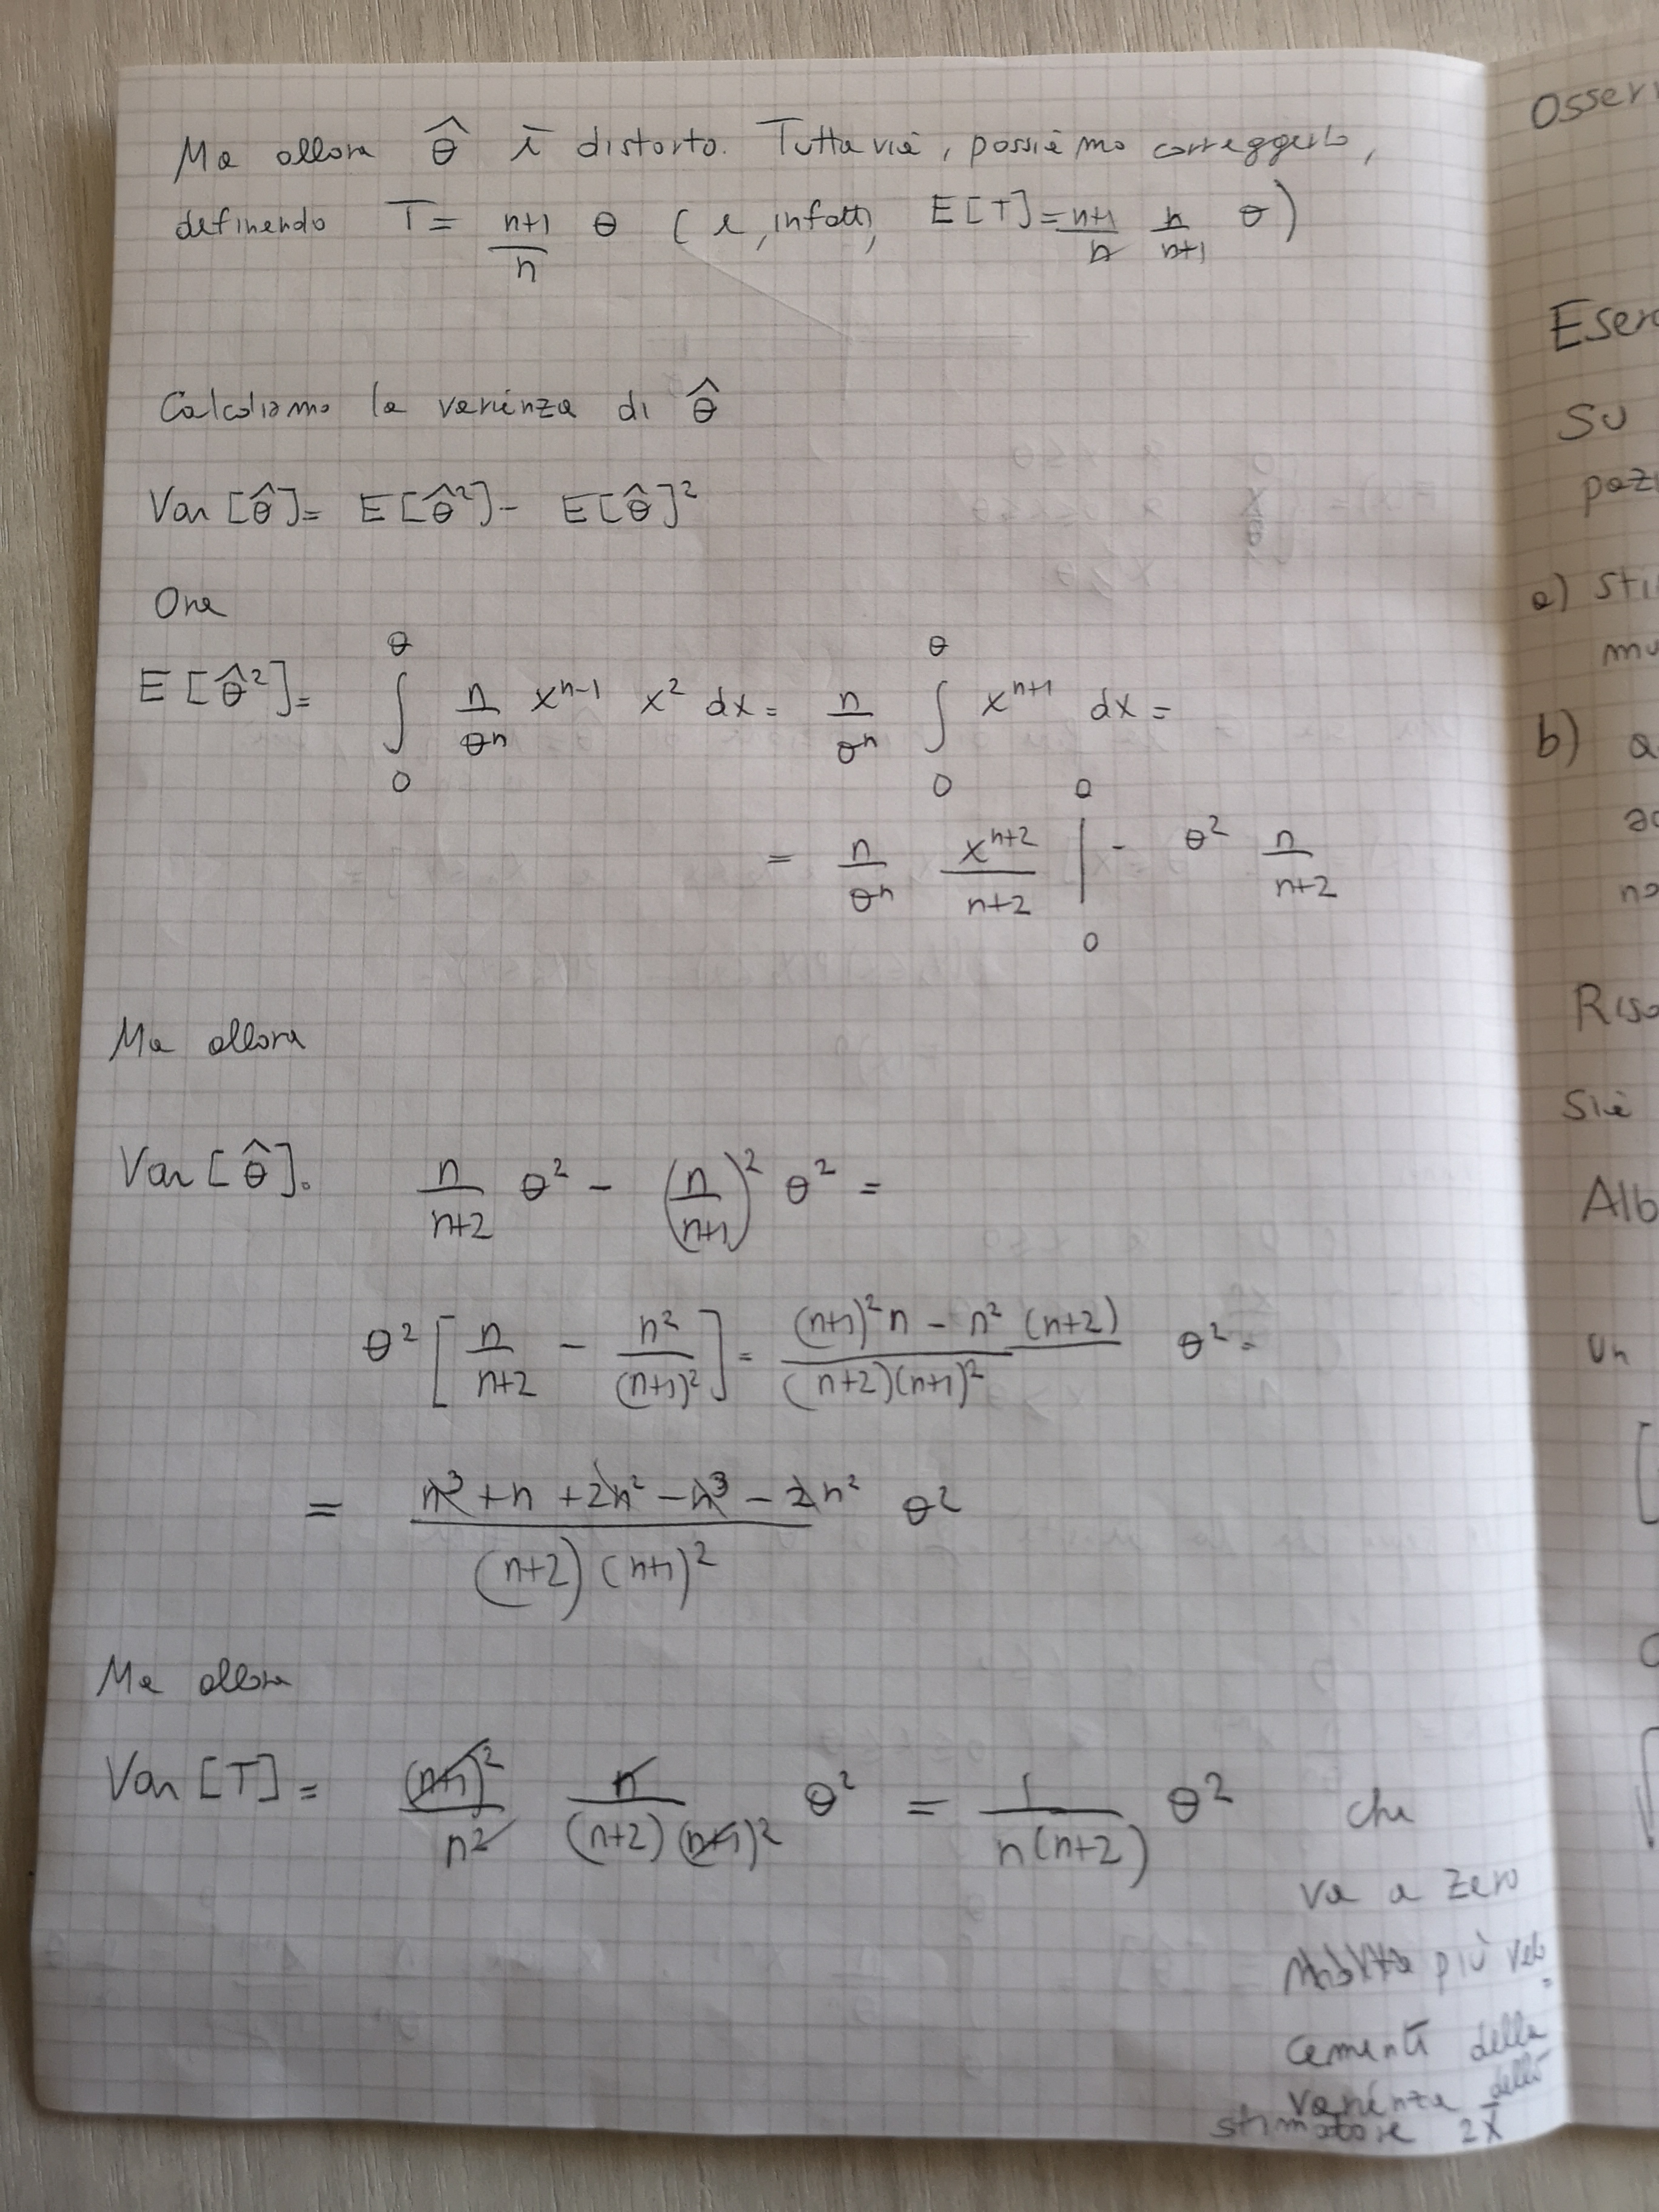 Ma allora θ̂ è distorto. Tuttavia, possiamo correggerlo,
definendo T = n+1/n θ ( e, infatti, E[T] = n+1/n n/n+1 θ )
Calcoliamo la varianza di θ̂
Var [θ̂] = E[θ̂²] - E[θ̂]²
Ora
E[θ̂²] = ∫₀^θ n/θⁿ xⁿ⁻¹ x² dx = n/θⁿ ∫₀^θ xⁿ⁺¹ dx =
= n/θⁿ xⁿ⁺²/n+2 |₀^θ - θ² n/n+2
Ma allora
Var [θ̂] = n/n+2 θ² - (n/n+1)² θ² =
θ² [ n/n+2 - n²/(n+1)² ] = (n+1)²n - n² (n+2)/(n+2)(n+1)² θ² =
= n³ + n + 2n² - n³ - 2n²/(n+2)(n+1)² θ²
Ma allora
Var [T] = (n+1)²/n² n/(n+2)(n+1)² θ² = 1/n(n+2) θ² che
va a zero
più velo=
cemente della
varianza dello
stimatore 2X̄
Osser
Eserc
Su
pazi
a) Sti
mu
b) a
ad
no
Riso
Sia
Alb
Un